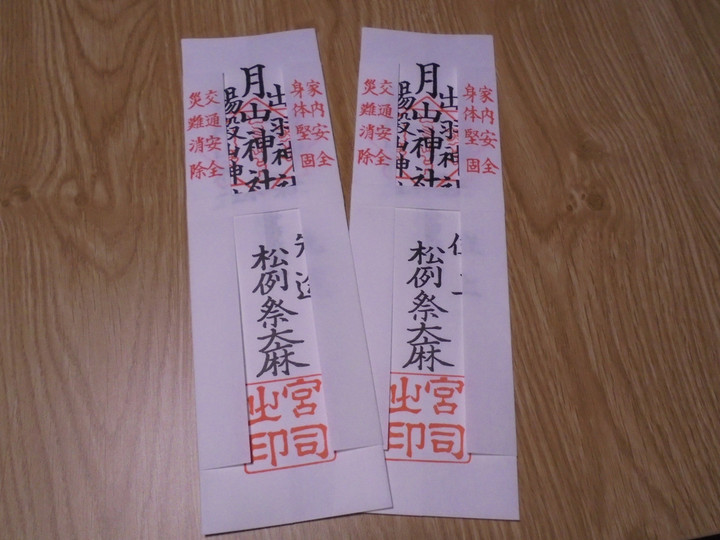 家内安全
身体堅固
出羽神
月山神社
湯殿山神
交通安全
災難消除
先途
松例祭大麻
宮司
之印
家内安全
身体堅固
出羽神
月山神社
湯殿山神
交通安全
災難消除
位上
松例祭大麻
宮司
之印